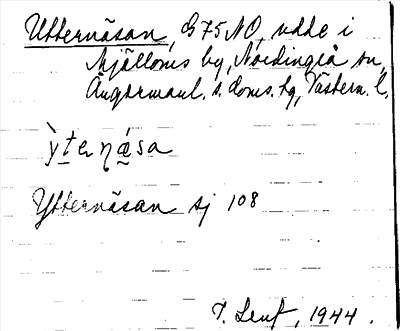 Utternäsan, G 75 NO, udde i
Mjälloms by, Nordingrå sn,
Ångermanl. s. doms. tg, Västern. l.
ỳtenása
Ytternäsan sj 108
1944.